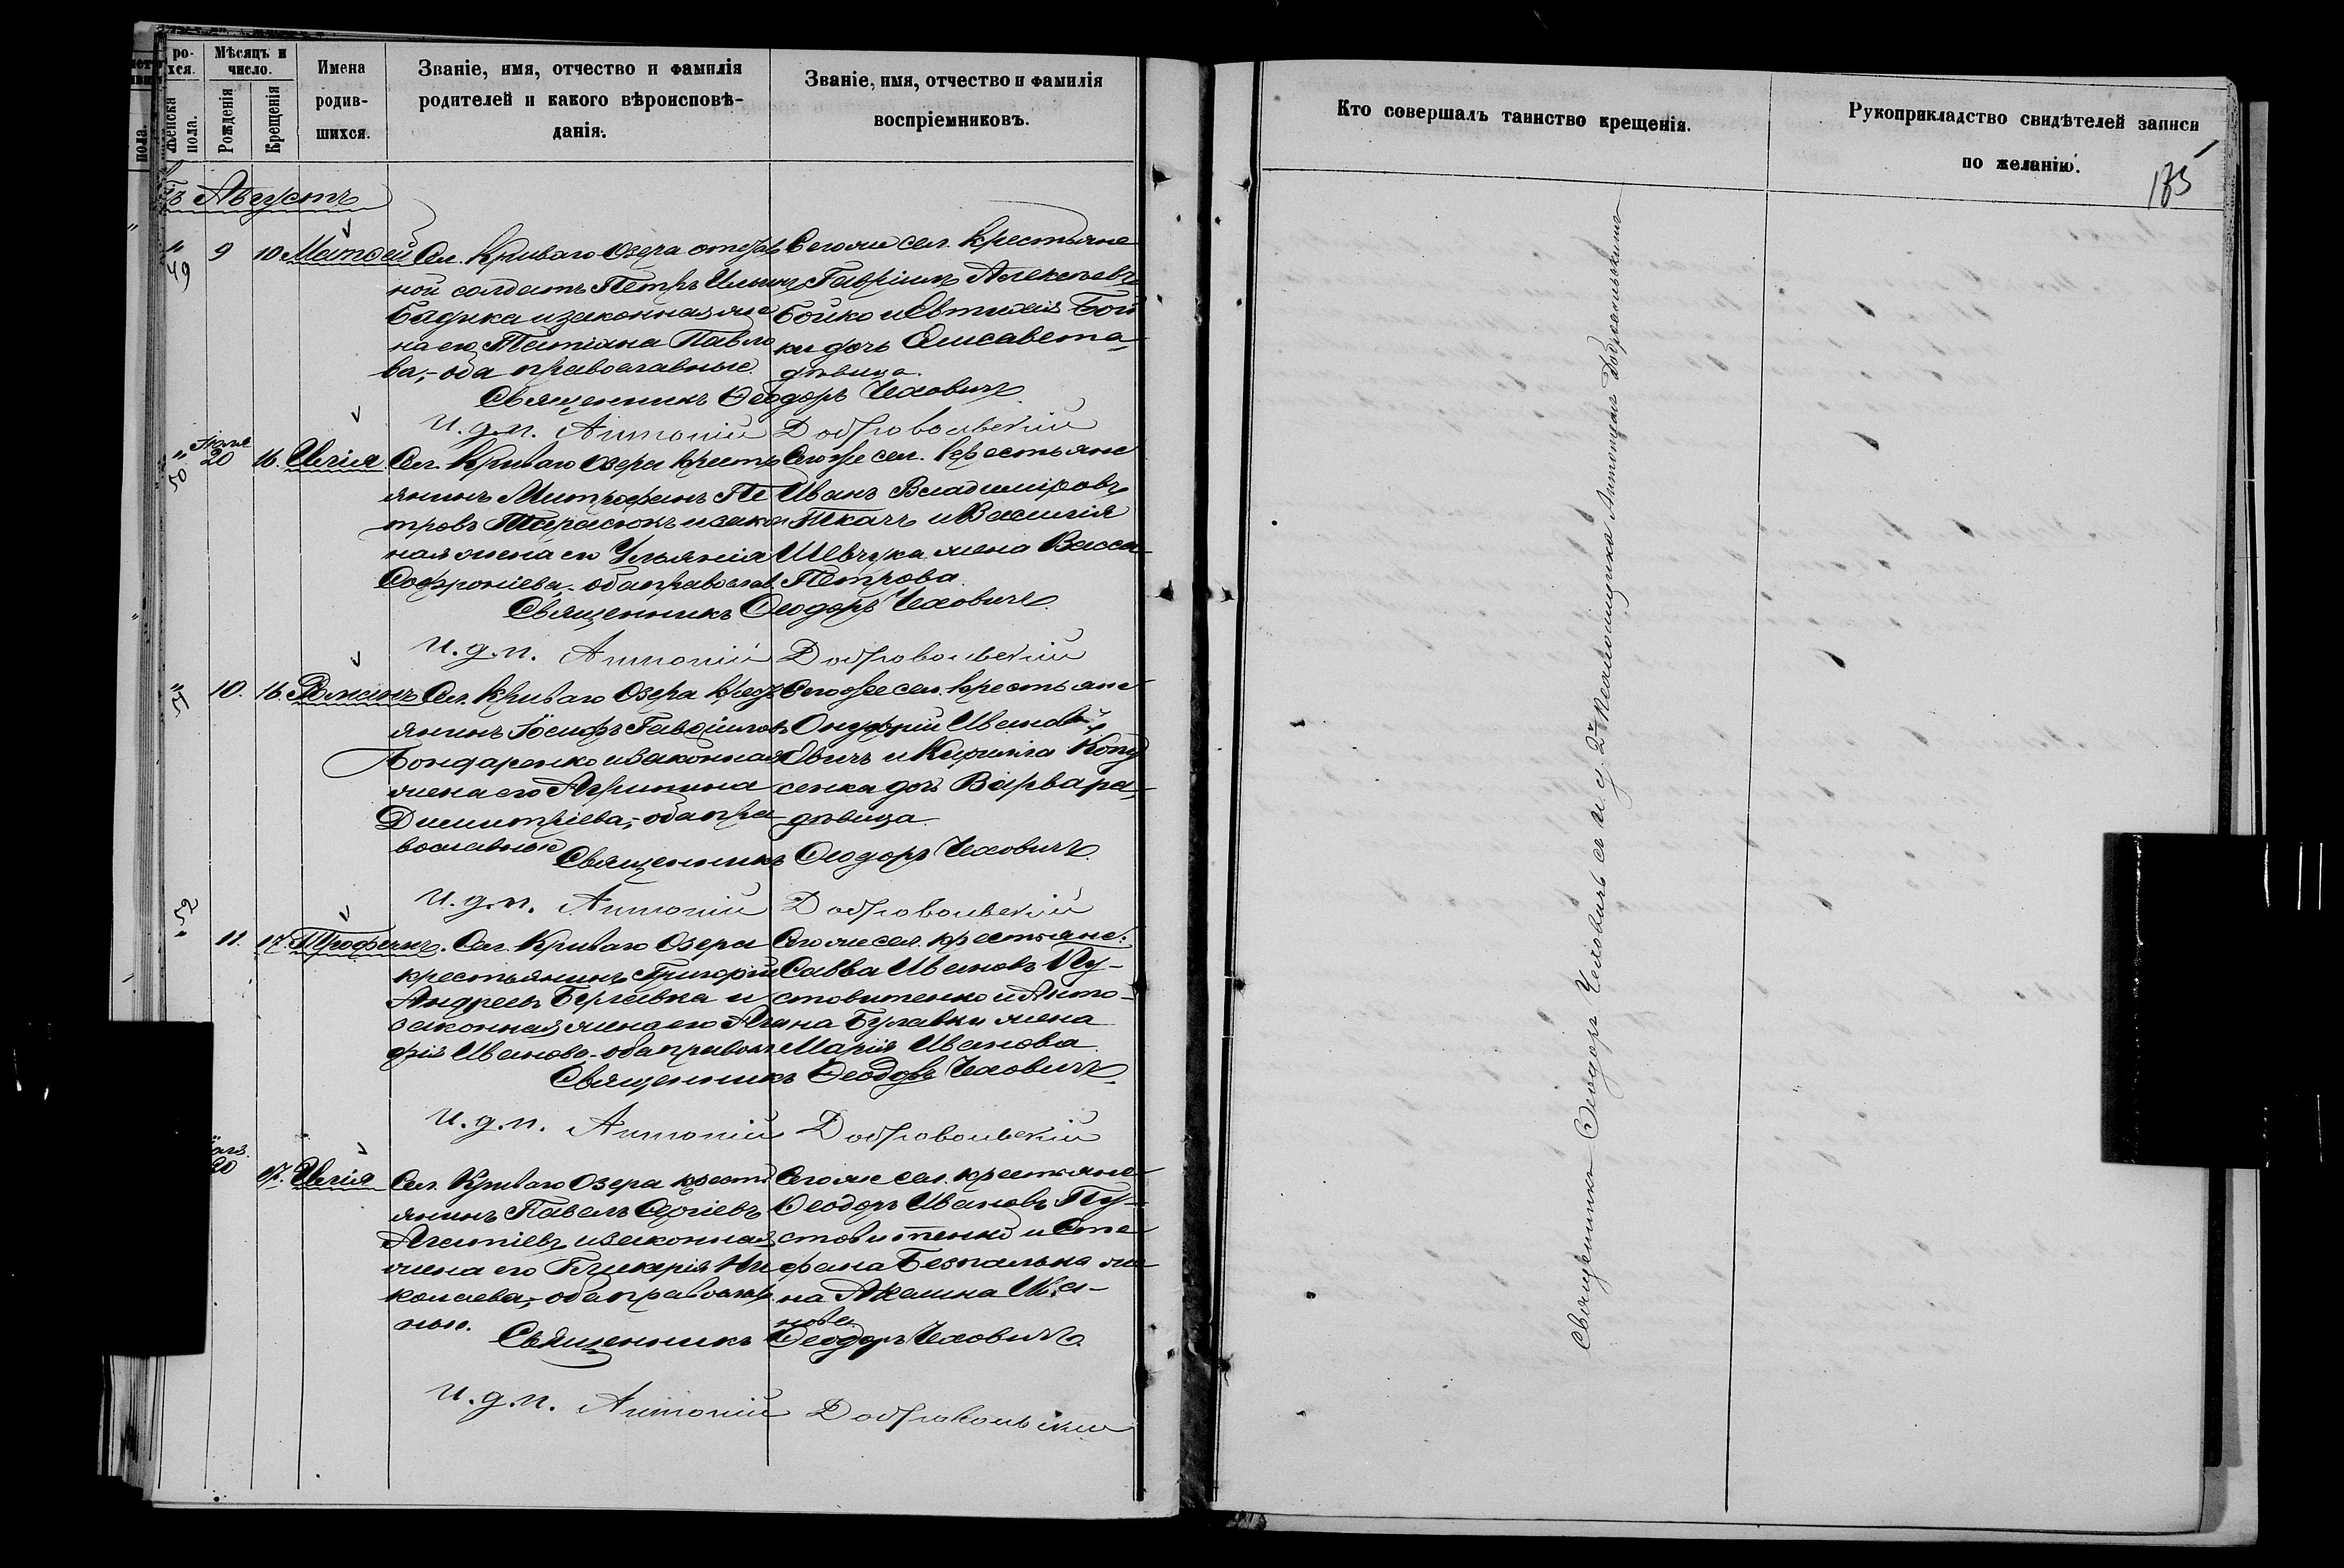 ро-
хся.
Мѣсяцъ и
число.
Женска
пола.
Рожденія
Крещенія
Имена
родив-
шихся.
Званіе, имя, отчество и фамилія
родителей и какого вѣроисповѣ-
данія.
Званіе, имя, отчество и фамилія
воспріемниковъ.
пола.
Августъ
49
9
10
Матѳей
Сел. Криваго Озера отстав
ной солдатъ Петръ Ильинъ
и законная же
на его Татіана Павло
ва, - оба православные.
Того же сел. крестьяне
Гавріилъ Алексѣевъ
Бойко и Евтихія Бой
ки дочь Елисавета,
дѣвица.
Священникъ Ѳеодоръ Чеховичъ
И. д. п. Антоній Добровольскій
50
Іюля
20
16.
Илія
Сел. Криваго Озера кресть
янинъ Митрофанъ Пе
тровъ Тарасюкъ и закон
ная жена его Ульянія
Софроніева, - оба православ
Того же сел. крестьяне
Иванъ Владиміровъ
Ткачъ и Василія
Шевчука жена Васса
Петрова.
Священникъ Ѳеодоръ Чеховичъ
И. д. п. Антоній Добровольскій
51
10.
16.
Романъ
Сел. Криваго Озера крест
янинъ Іосифъ Гавріиловъ
Бондаренко и законная
жена его Агрипина
Димитріева, - оба пра
вославные
Того же сел. крестьяне
Онуфрій Иванов
и Кирилла
сенка дочь Варвара,
дѣвица
Священникъ Ѳеодоръ Чеховичъ
И. д. п. Антоній Добровольскій
52
11.
17.
Трофимъ.
Сел. Криваго Озера
крестьянинъ Григорій
Андреевъ и
законная жена его Ага
фія Иванова - оба правосл
Того же сел. крестьяне:
Савва Ивановъ Пу-
стовитенко и Анто-
на Булавки жена
Марія Иванова
Священникъ Ѳеодоръ Чеховичъ
И. д. п. Антоній Добровольскій
20
17.
Илія
Сел. Криваго Озера кресть
янинъ Павелъ Сергіевъ
и законная
жена его Гликерія Ни
колаева, - оба православ
ные.
Того же сел. крестьяне
Ѳеодоръ Ивановъ Пу-
стовитенко и Сте
фана Безпалька же
на Акилина Ива-
нова
Священникъ Ѳеодоръ Чеховичъ
И. д. п. Антоній Добровольскій
Кто совершалъ таинство крещенія.
Рукоприкладство свидѣтелей записи
по желанію.
Священникъ Ѳеодоръ Чеховичъ съ и. д. 2го псаломщика Антоніемъ Добровольскимъ